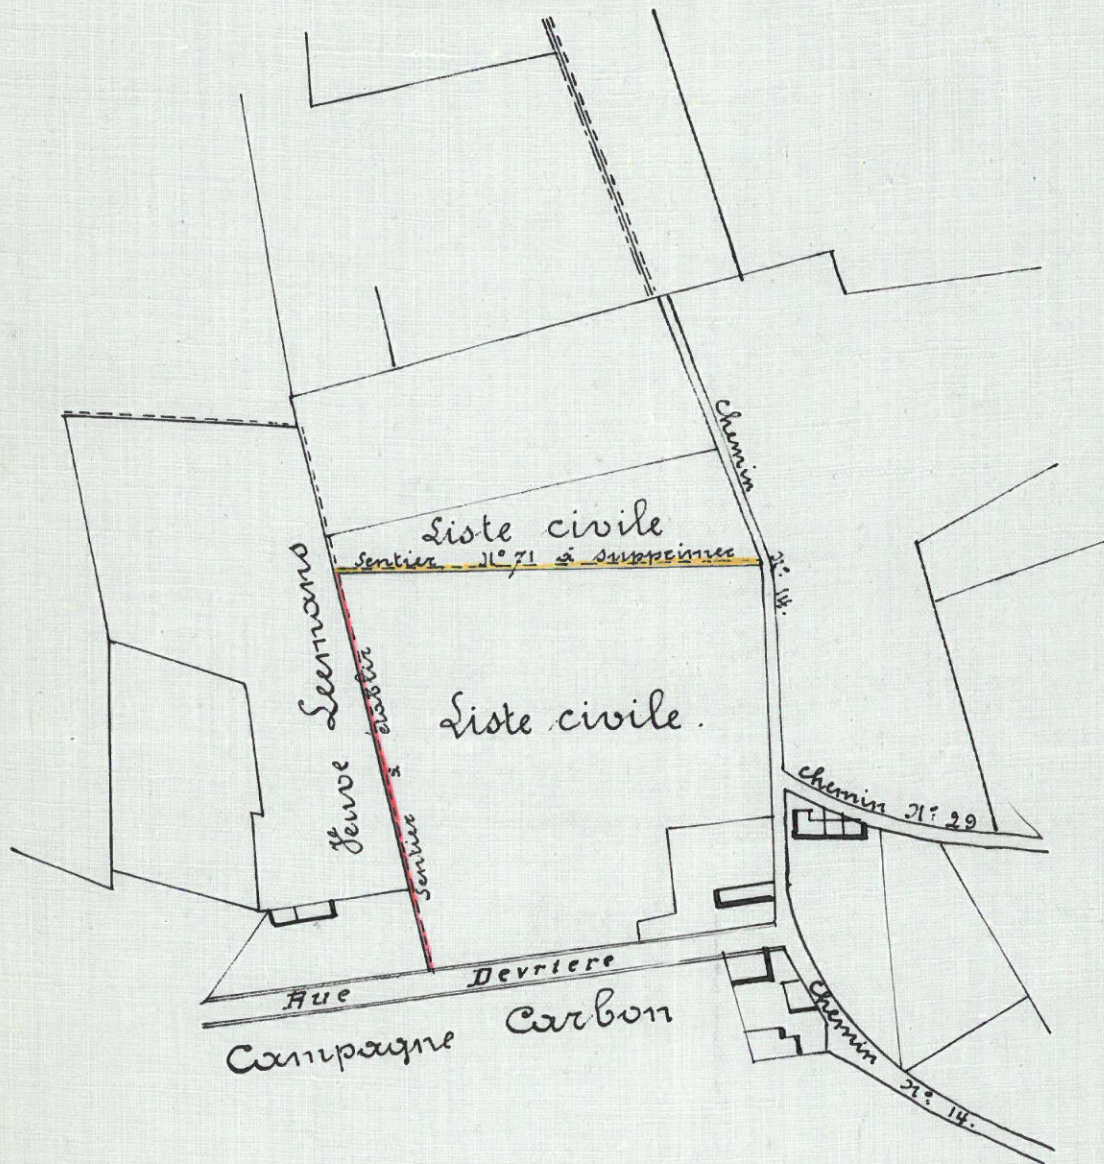 Chemin
N° 14.
Liste civile
Sentier N° 71 à supprimer
Veuve Leemans
Sentier à établir
Liste civile.
Chemin N° 29
Rue Devriere
Campagne Carbon
Chemin N° 14.